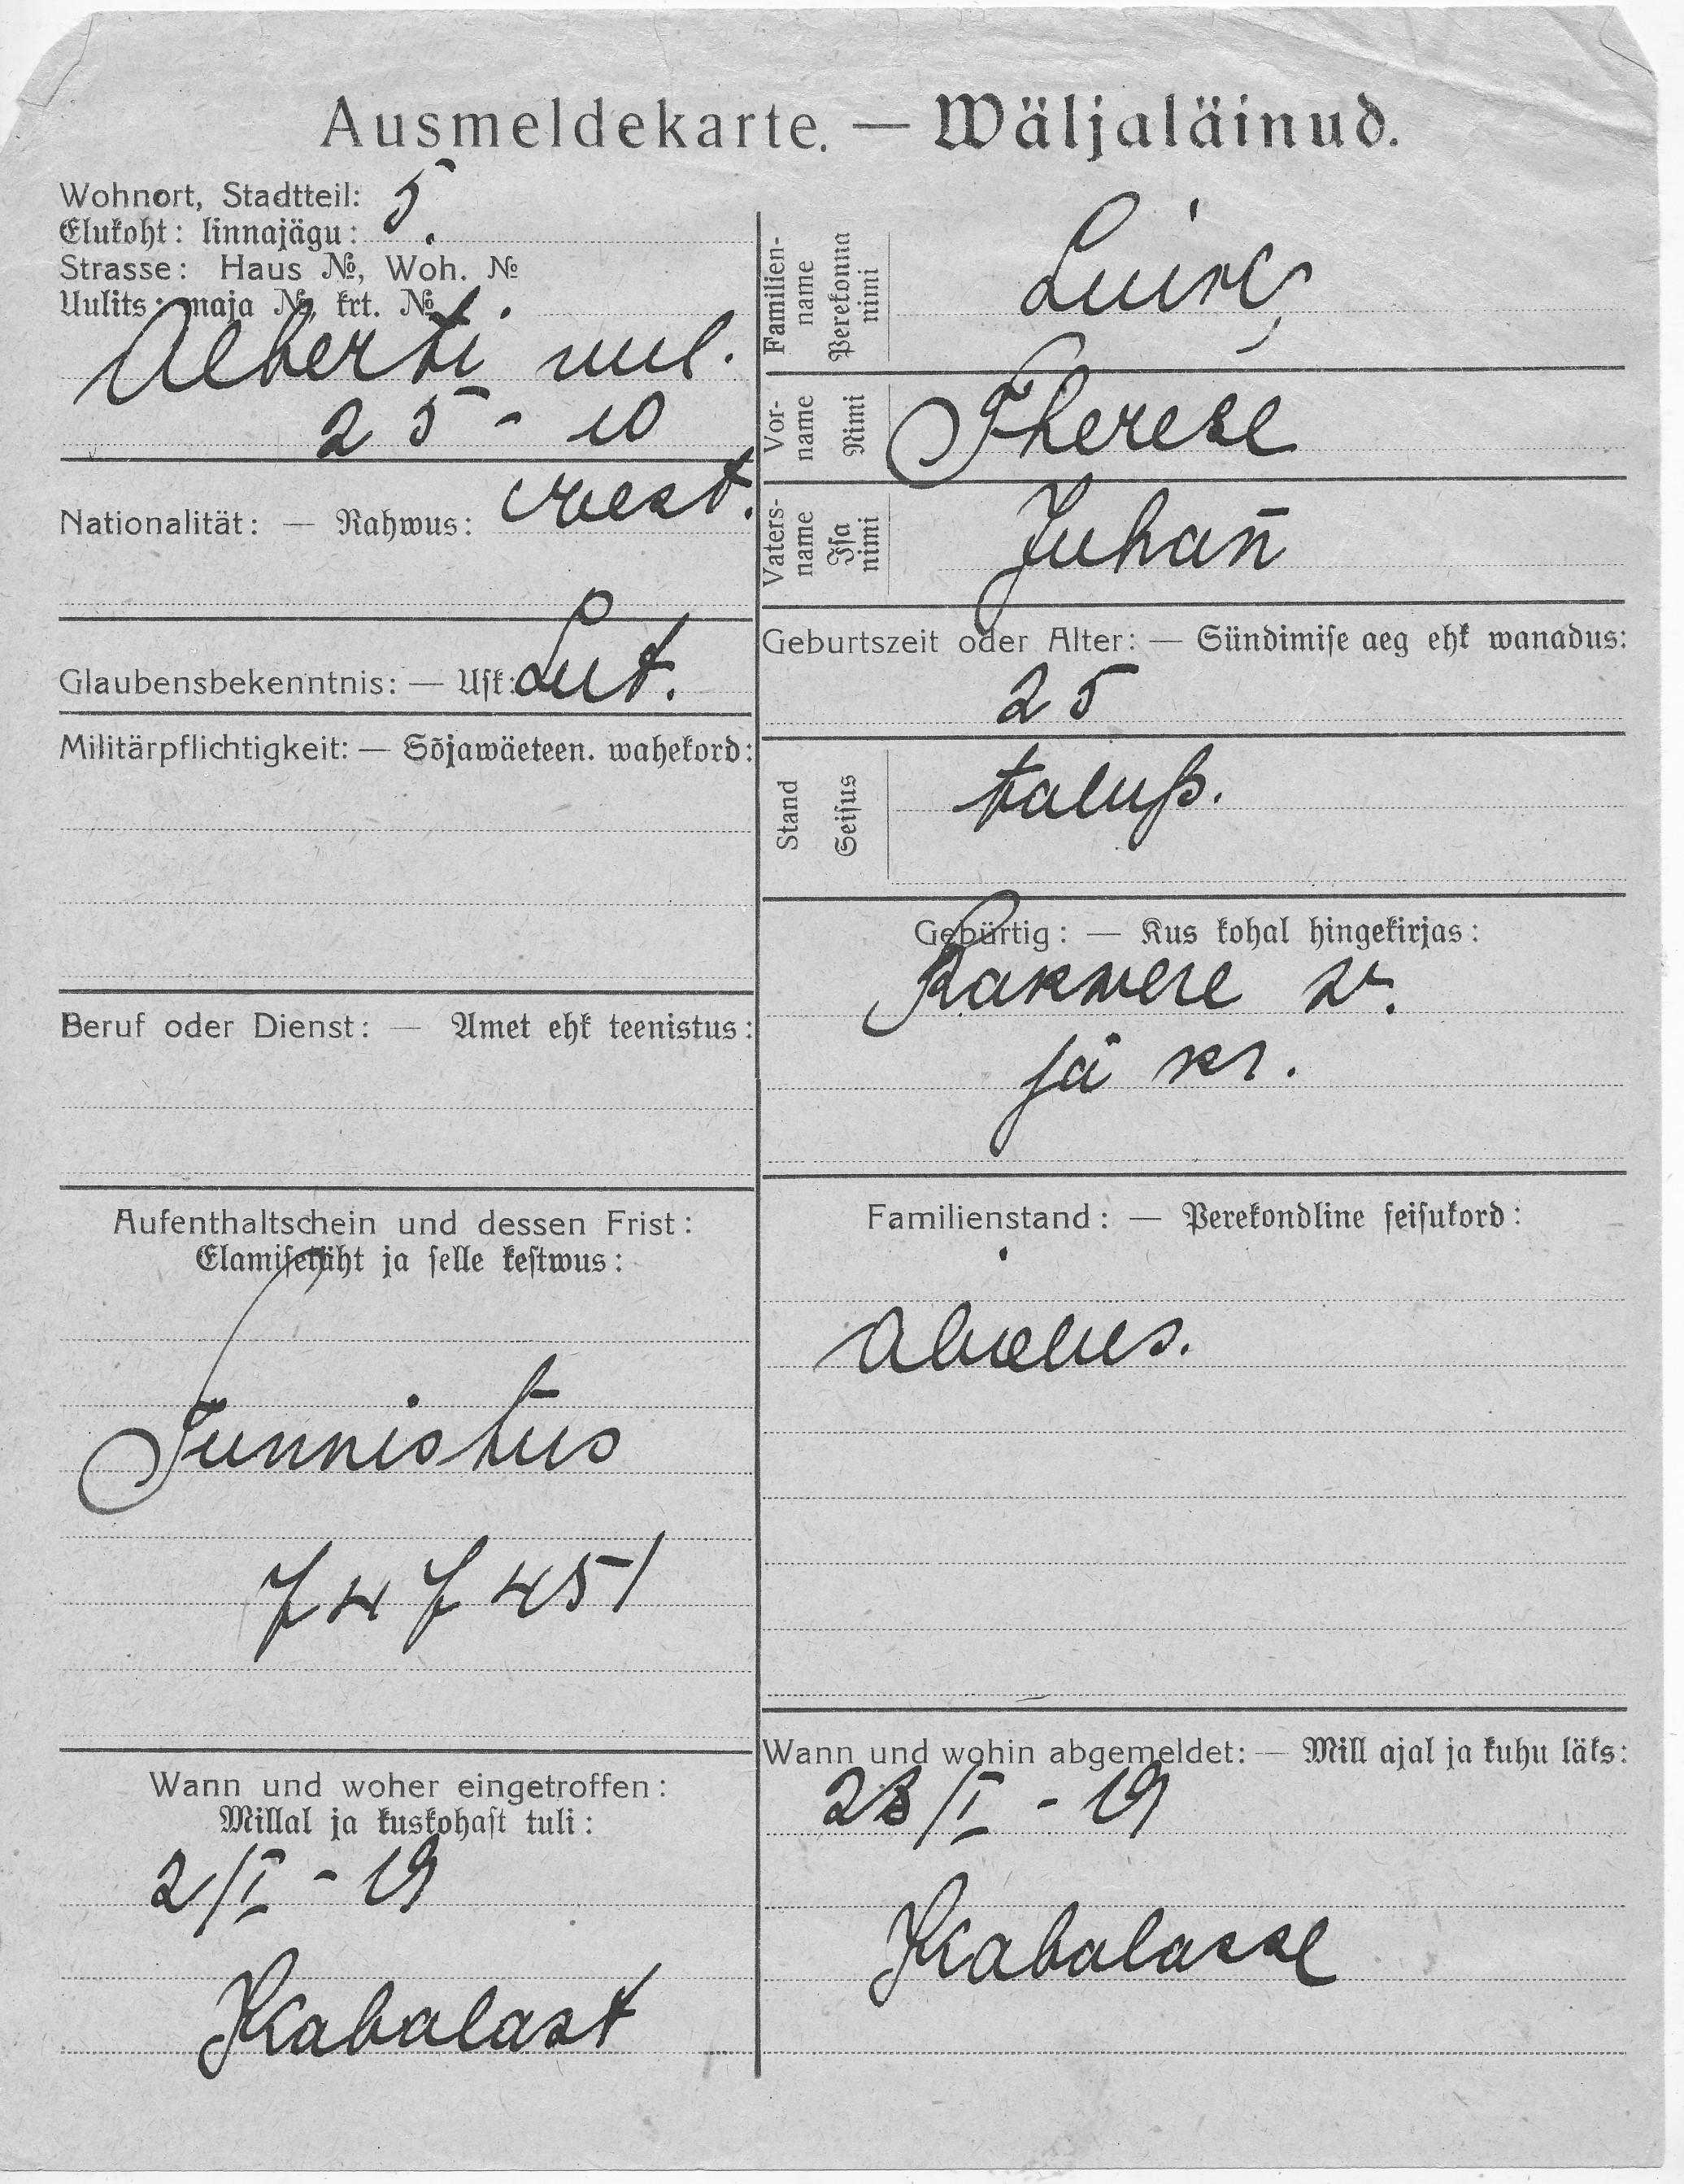 Ausmeldekarte. — Wäljaläinud.
Wohnort, Stadtteil: 5.
Elukoht: linnajägu:
Strasse: Haus №, Woh. №
Uulits: maja №, krt. №
Alberti uul.
25 - 10
Nationalität: — Rahwus: eest.
Glaubensbekenntnis: — Usk: Lut.
Militärpflichtigkeit: — Sõjawäeteen. wahekord:
Beruf oder Dienst: — Amet ehk teenistus:
Aufenthaltschein und dessen Frist:
Elamisetäht ja selle kestwus:
Tunnistus
747451
Wann und woher eingetroffen:
Millal ja kuskohast tuli:
2/I - 19
Kabalast
Familien-
name
Perekonna
nimi
Vor-
name
Nimi
Therese
Vaters-
name
Isa
nimi
Juhan̄
Geburtszeit oder Alter: — Sündimise aeg ehk wanadus:
25
Stand
Seisus
talup.
Gebürtig: — Kus kohal hingekirjas:
Rakwere w.
ja kr.
Familienstand: — Perekondline seisukord:
abielus.
Wann und wohin abgemeldet: — Mill ajal ja kuhu läks:
23/I - 19
Kabalasse